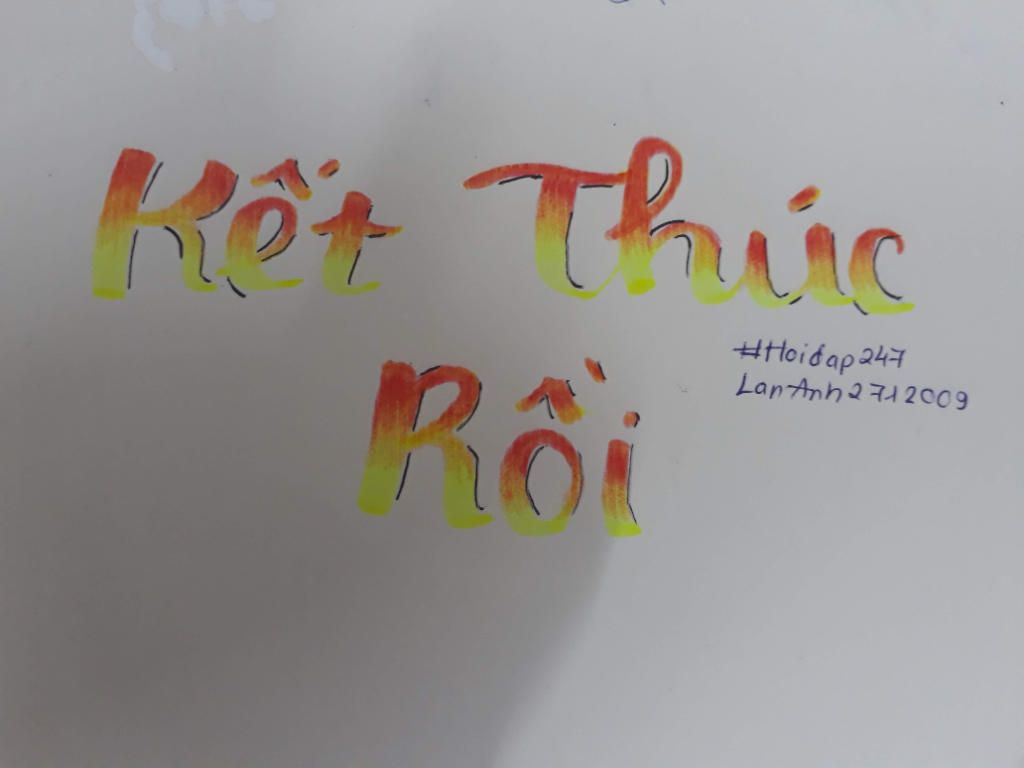 Kết Thúc
Rồi
#Hoidap247
LanAnh2712009